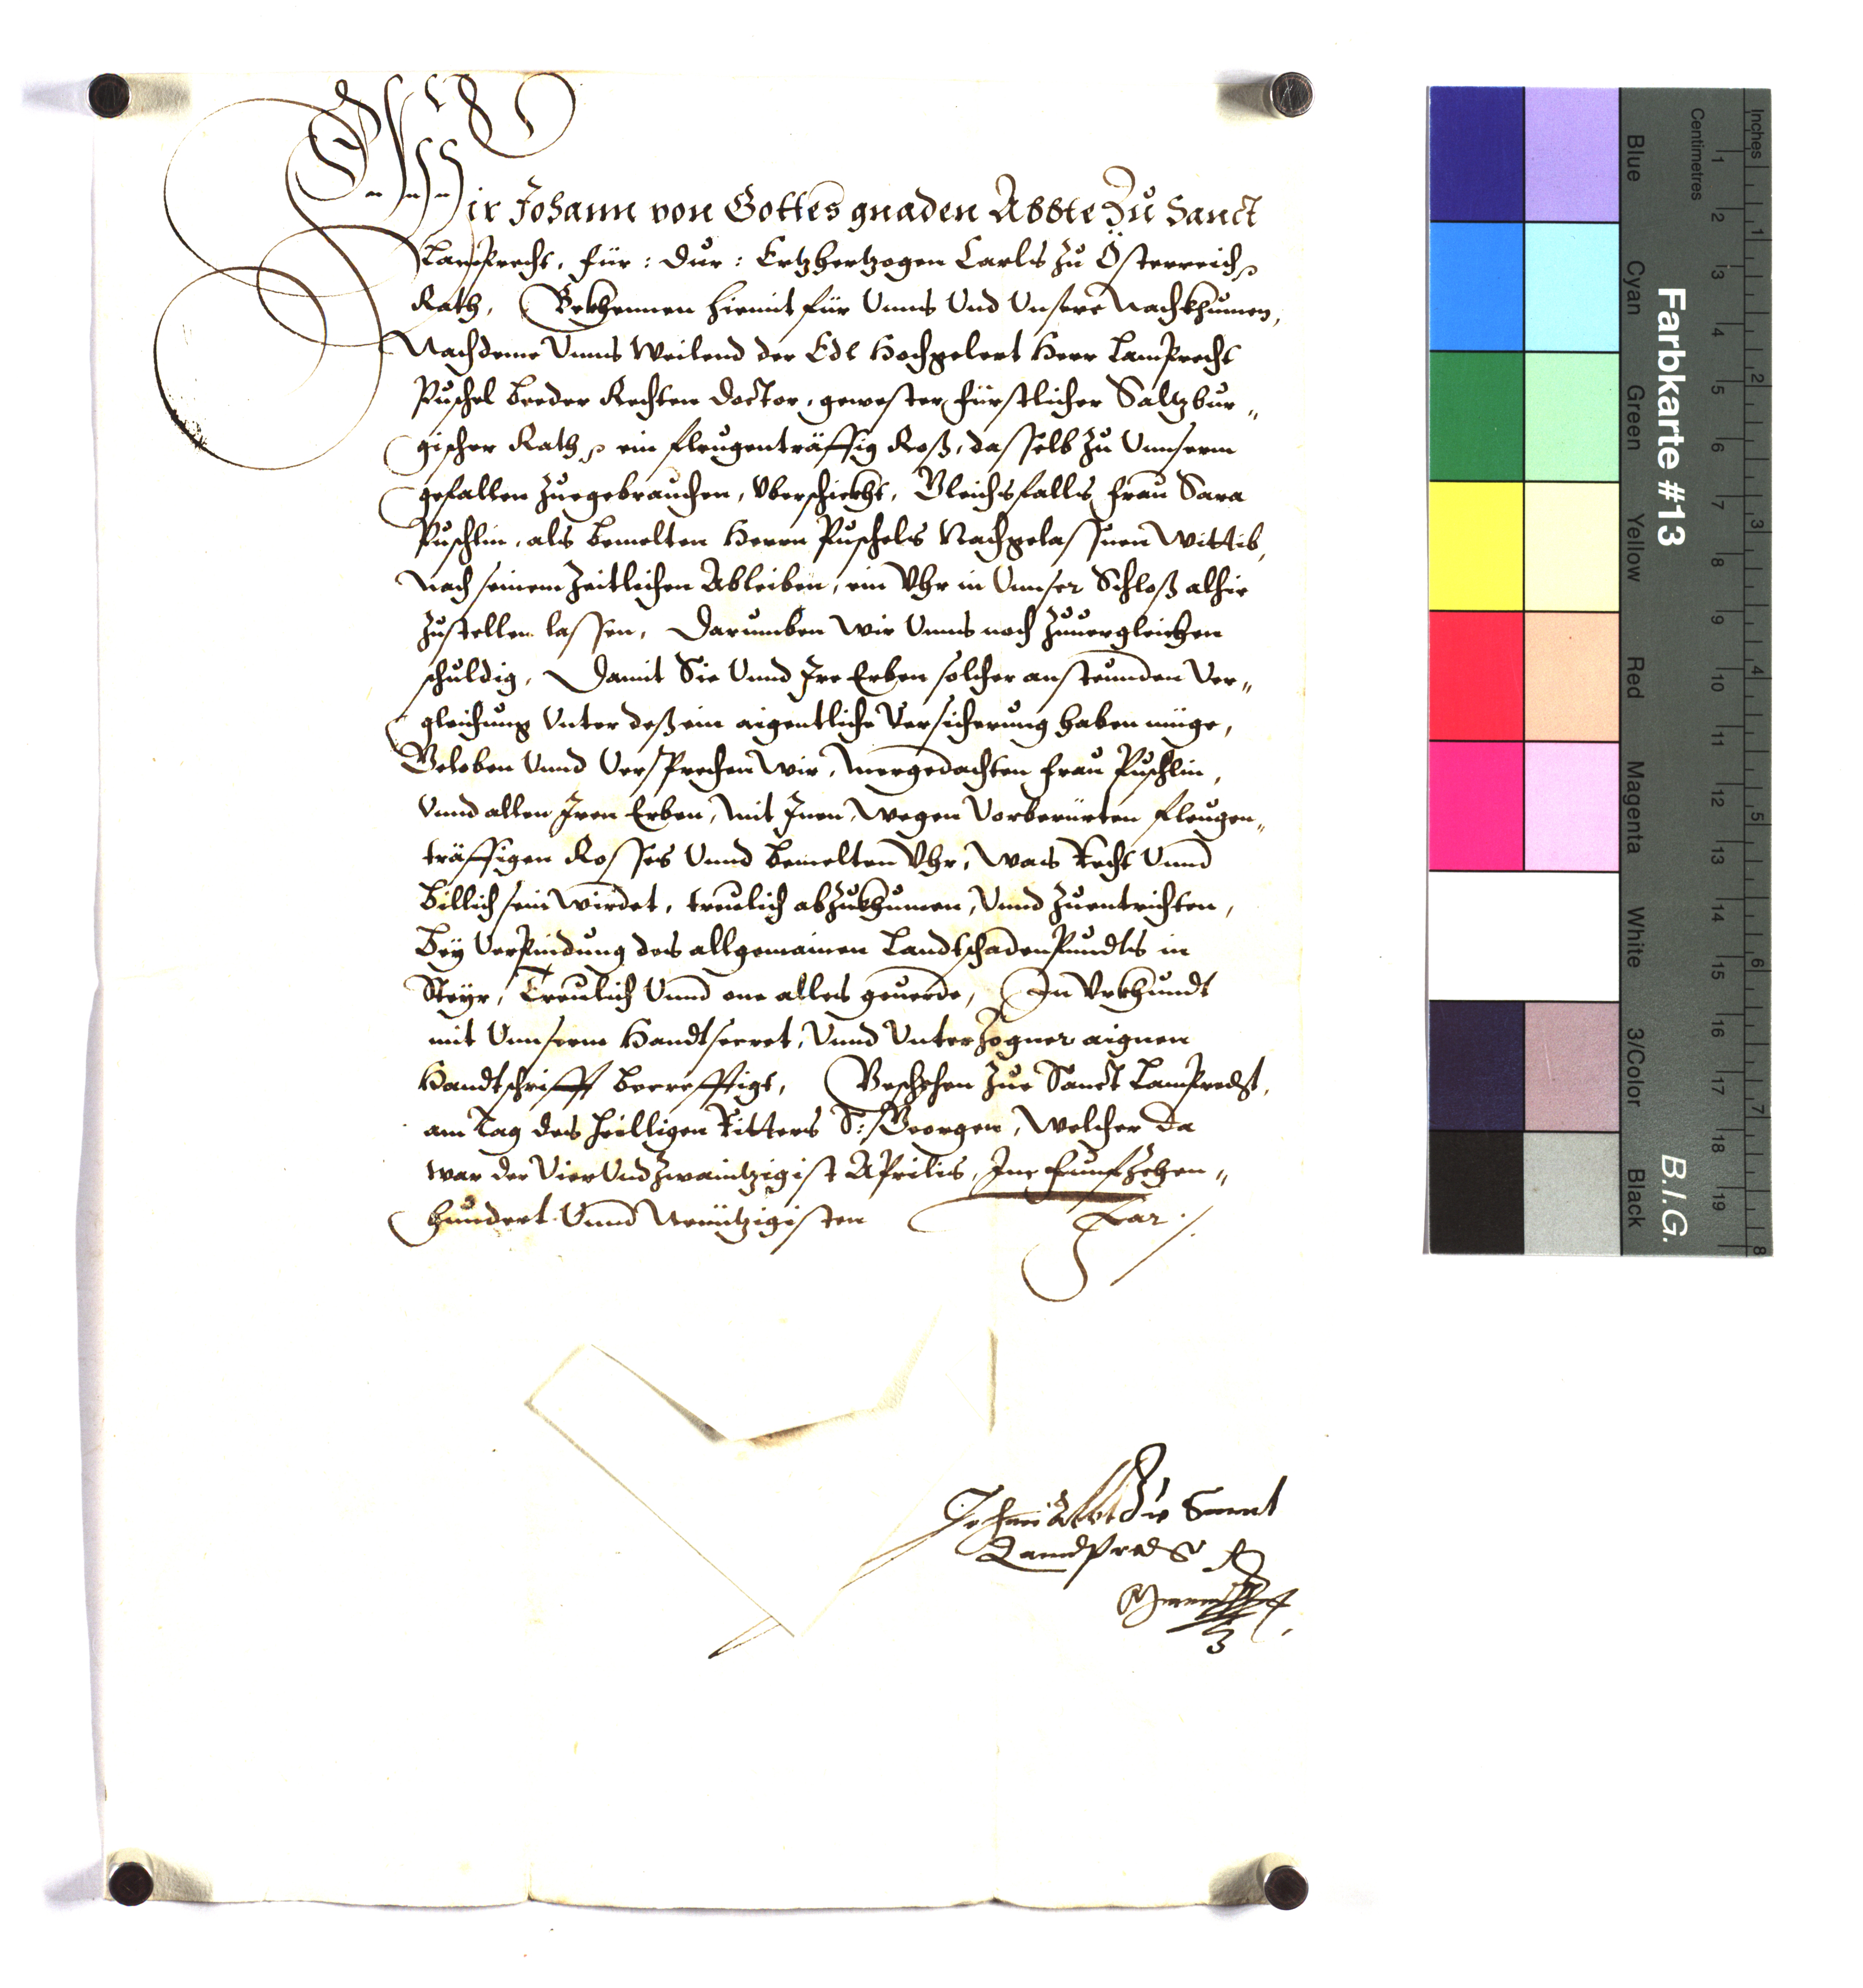 Wir Johann von Gottes gnaden Abbte Zu Sanct
Lamprecht, Für: Dur: Ertzhertzogen Carls zu Österreich
Rath, Bekhennen hiemit für Unns Und Unsere Nachkhumen,
Nachdeme Unns Weilend der Edl Hochgelert Herr Lamprecht
Puschel beeder Rechten Doctor, gewester Fürstlicher Saltzbur„
gischer Rath ein fleugenträffig Roß, dasselb zu Unnserm
gefallen zuegebrauchen, Uberschickht, Gleichsfalls Frau Sara
Puschlin, als bemelten Herrn Puschels Nachgelassnen Wittib,
Nach seinem Zeitlichen Ableiben, ein Uhr in Unnser Schloß alhie
zustellen lassen, Darumben Wir Unns noch zuuergleichen
schuldig, Damit Sie Unnd Ire Erben solcher ansteunden Ver„
gleichung Unter deß ein aigentliche Versicherung haben müge,
Geloben Unnd Versprechen Wir, Mergedachten Frau Puschlin,
Unnd allen Iren Erben, Mit Inen, Wegen Vorberürten fleugen„
träffigen Rosses Unnd bemelten Uhr, Was Recht Unnd
billich sein Wirdet, treulich abzukhumen, Unnd zuentrichten,
Bey Verpindung des allgemainen Landtschadenpundts in
Steyr, Treulich Unnd one alles geuerde, In Urkhundt
mit Unnserm Handtsecret, Unnd Unterzogner aignen
Handtschrifft becrefftigt, Geschehen Zue Sanct Lamprecht,
am Tag des Heilligen Ritters S: Georgen, Welcher da
war der Vier Und Zwaintzigist Aprilis, Im Funfzehen„
hundert Unnd Neüntzigisten Jar./.
Johann Abbt Zu Sanct
Lamprecht
Farbkarte #13
B.I.G.
Inches
Centimetres
1 2 3 4 5 6 7 8
1 2 3 4 5 6 7 8 9 10 11 12 13 14 15 16 17 18 19
Blue
Cyan
Green
Yellow
Red
Magenta
White
3/Color
Black